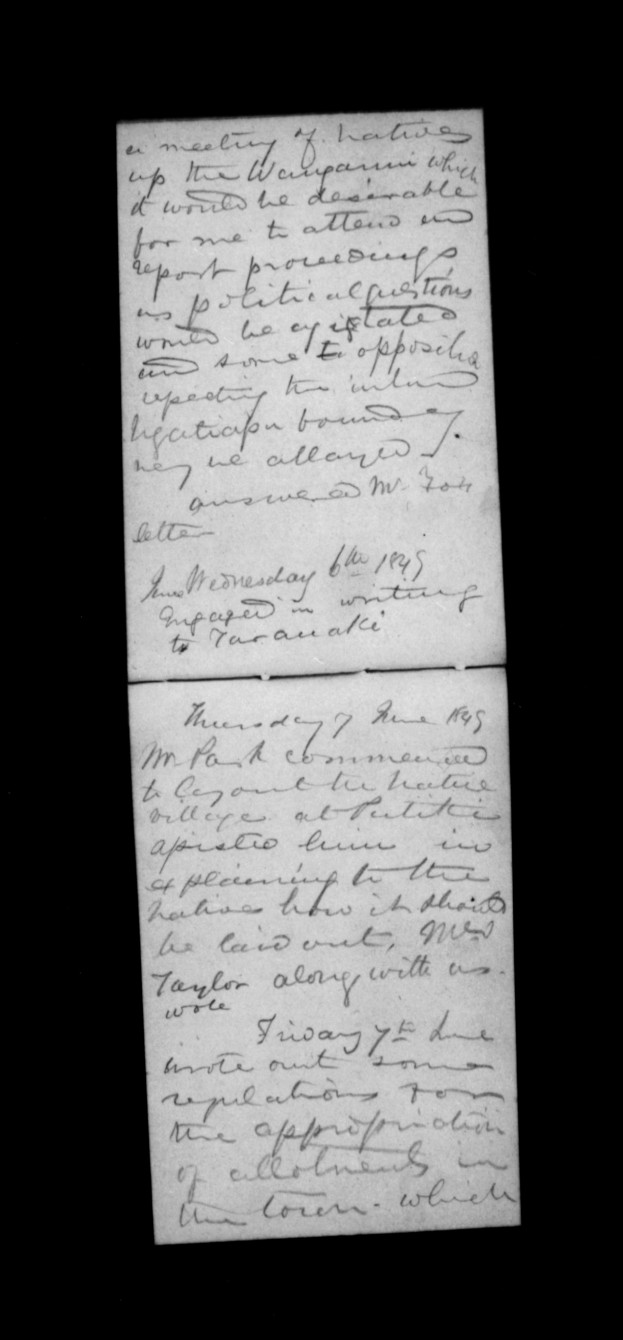 a meeting of natives
up the Wanganui which
it would be desirable
for me to attend and
report proceedings
as political questions
would be agitated
and some opposition
repecting the inland
Ngatiapa boundary
may be allayed.
answered Mr Fox
letter
June Wednesday 6th 1849
Engaged in writing
to Taranaki
Thursday 7 June 1849
Mr Park commenced
to layout the native
village at Putiki
assisted him in
explaining to the
natives how it should
be laid out, Mrs
Taylor along with us.
wrote
Friday 7th June
wrote out some
regulations for
the appropriation
of allotments in
the town. which